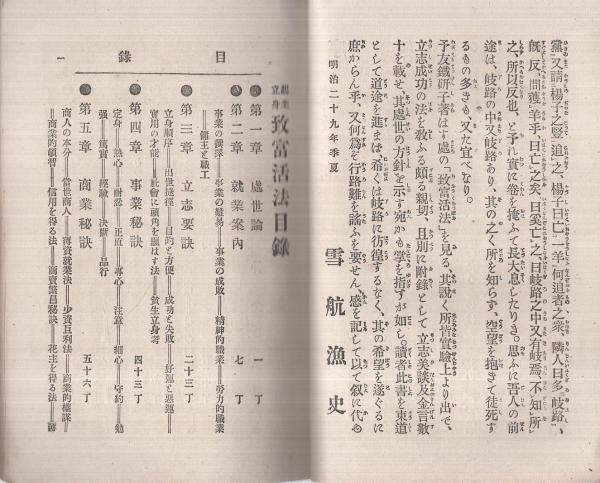 黨、又請楊子之竪追之、楊子曰亡一羊、何追者之衆、隣人曰多岐路、
既反、問獲羊乎、曰亡之矣、曰奚亡之、曰岐路之中又有岐焉、不知所
之、所以反也、と予れ實に卷を掩ふて長大息したりき。思ふに吾人の前
途は、岐路の中又岐路あり、其の之く所を知らず、空望を抱きて徒死す
るもの多きも、又た宜べなり。
予友鐵研子著はす處の「致富活法」を見る、其說く所皆實驗上より出で、
立志成功の法を敎ふる頗る親切、且別に附錄として立志美談及金言數
十を載せ、其處世の方針を示す宛かも掌を指すが如し。讀者此書を東道
として道途を進まば、希くは岐路に彷徨するなく、其の希望を遂ぐるに
庶からん乎、又何爲ぞ行路難を謠ふを要せん、感を記して以て叙に代ゆ
明治二十九年季夏
雪航漁史
目錄
立身 致富活法目錄
第一章 處世論 一丁
第二章 就業案内 七丁
事業の撰擇━事業の難易━事業の成敗━精神的職業━勞力的職業
━傭主と職工
第三章 立志要訣 二十三丁
立身順序━出世捷徑━目的と方便━成功と失敗━好運と惡運━
實用の才能━社會に頭角を顯はす法━貧生立身考
第四章 事業秘訣 四十三丁
定身━熱心━耐忍━正直━專心━注意━細心━守約━勉
强━篤實━經驗━決斷━品行
第五章 商業秘訣 五十六丁
商人の本分━當世商人━商賣就業法━少資巨利法━商業的極談
━商業的顧智━信用を得る法━商賣繁昌秘訣━花主を得る法━
一